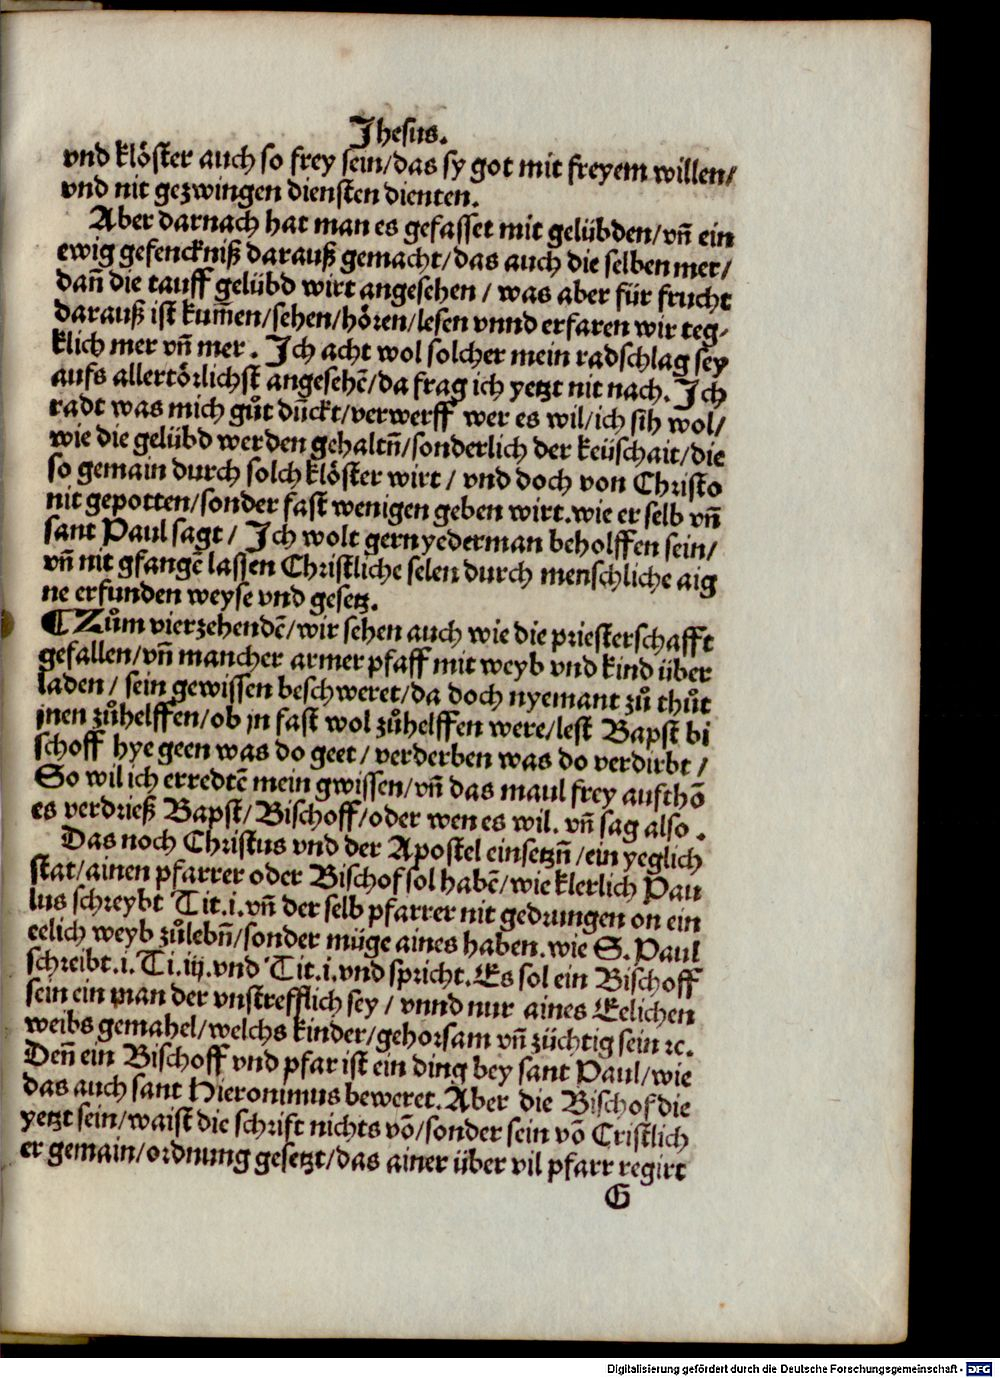 Jhesus.
vnd klöster auch so frey sein/das sy got mit freyem willen/
vnd nit gezwingen diensten dienten.
Aber darnach hat man es gefasset mit gelübden/vn̄ ein
ewig gefenckniß darauß gemacht/das auch die selben mer/
dan̄ die tauff gelübd wirt angesehen / was aber für frucht
darauß ist kum̄en/sehen/hören/lesen vnnd erfaren wir teg-
klich mer vn̄ mer. Ich acht wol solcher mein radschlag sey
aufs allertörlichst angesehē/da frag ich yetzt nit nach. Ich
radt was mich gůt dün̄ckt/verwerff wer es wil/ich sih wol/
wie die gelübd werden gehaltn̄/sonderlich der keüschait/die
so gemain durch solch klöster wirt / vnd doch von Christo
nit gepotten/sonder fast wenigen geben wirt.wie er selb vn̄
sant Paul sagt / Ich wolt gern yederman beholffen sein/
vn̄ nit gfangē lassen Christliche selen durch menschliche aig
ne erfunden weyse vnd gesetz.
¶Zům vierzehendē/wir sehen auch wie die priesterschafft
gefallen/vn̄ mancher armer pfaff mit weyb vnd kind über
laden / sein gewissen beschweret/da doch nyemant zů thůt
jnen zůhelffen/ob jn fast wol zůhelffen were/lest Bapst bi
schoff hye geen was do geet / verderben was do verdirbt /
So wil ich erredtē mein gwissen/vn̄ das maul frey aufthō
es verdrieß Bapst/Bischoff/oder wen es wil. vn̄ sag also.
Das noch Christus vnd der Apostel einsetzn̄/ein yeglich
stat/ainen pfarrer oder Bischof sol habē/wie klerlich Pau
lus schreybt Tit.i.vn̄ der selb pfarrer nit gedrungen on ein
eelich weyb zůlebn̄/sonder müge aines haben.wie S.Paul
schreibt.i.Ti.iij.vnd Tit.i.vnd spricht.Es sol ein Bischoff
sein ein man der vnstrefflich sey / vnnd nur aines Eelichen
weibs gemahel/welchs kinder/gehorsam vn̄ züchtig sein ꝛc.
Den̄ ein Bischoff vnd pfar ist ein ding bey sant Paul/wie
das auch sant Hieronimus beweret.Aber die Bischof die
yetzt sein/waist die schrift nichts vō/sonder sein vō Cristlich
er gemain/ordnung gesetzt/das ainer über vil pfarr regirt
G
Digitalisierung gefördert durch die Deutsche Forschungsgemeinschaft - DFG